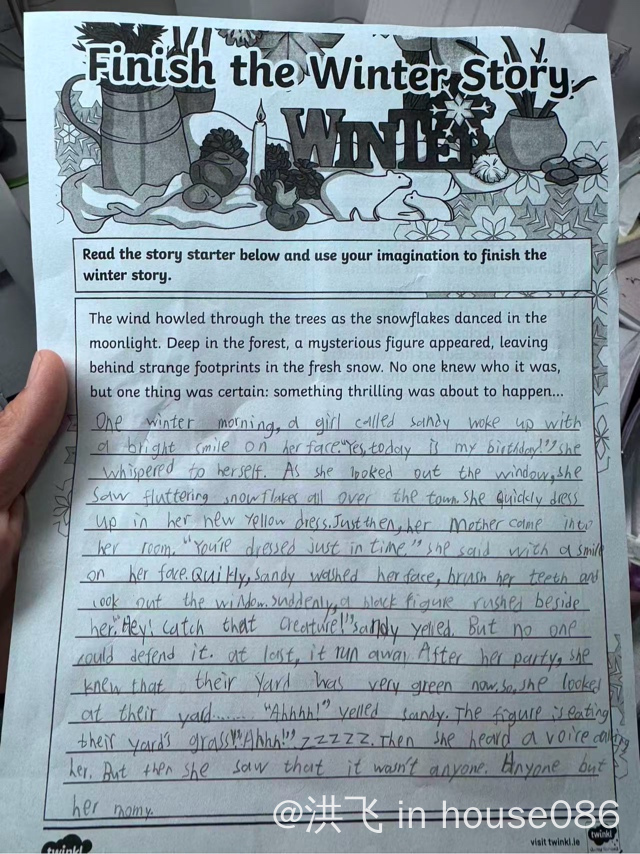 Finish the Winter Story
WINTER
Read the story starter below and use your imagination to finish the
winter story.
The wind howled through the trees as the snowflakes danced in the
moonlight. Deep in the forest, a mysterious figure appeared, leaving
behind strange footprints in the fresh snow. No one knew who it was,
but one thing was certain: something thrilling was about to happen...
One winter morning, a girl called sandy woke up with
a bright smile on her face. "Yes, today is my birthday!" she
whispered to herself. As she looked out the window, she
saw fluttering snowflakes all over the town. She quickly dress
up in her new yellow dress. Just then, her Mother come into
her room. "You're dressed just in time." she said with a smile
on her face. Quikly, Sandy washed her face, brush her teeth and
look out the window. suddenly, a black figure rushed beside
her. "Hey! Catch that creature!" sandy yelled. But no one
could defend it. at last, it run away. After her party, she
knew that their yard was very green now. So, she looked
at their yard....... "Ahhhh!" yelled sandy. The figure is eating
their yard's grass! "Ahhh!", zzzzz. Then she heard a voice
her. But then she saw that it wasn't anyone. Anyone but
her momy.
@洪飞 in house086
twinkl
visit twinkl.ie
twinkl